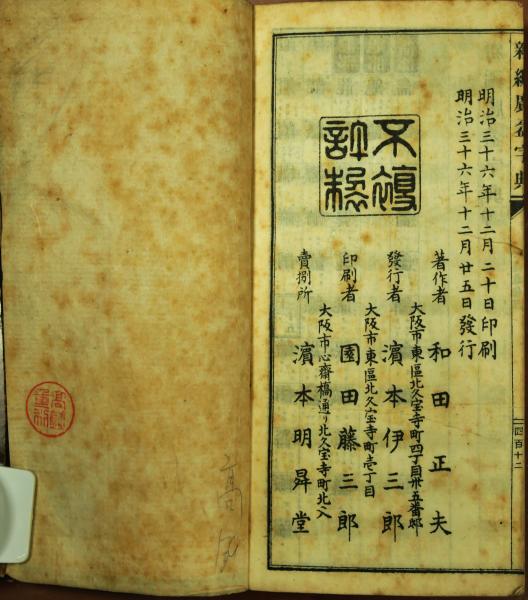 明治三十六年十二月二十日印刷
明治三十六年十二月廿五日發行
不許
著作者 和田正夫
大阪市東區北久宝寺町四丁目卅五番邸
發行者 濱本伊三郎
大阪市東區北久宝寺町壱丁目
印刷者 園田藤三郎
大阪市心齋橋通り北久宝寺町北入
賣捌所 濱本明昇堂
四百十二
高